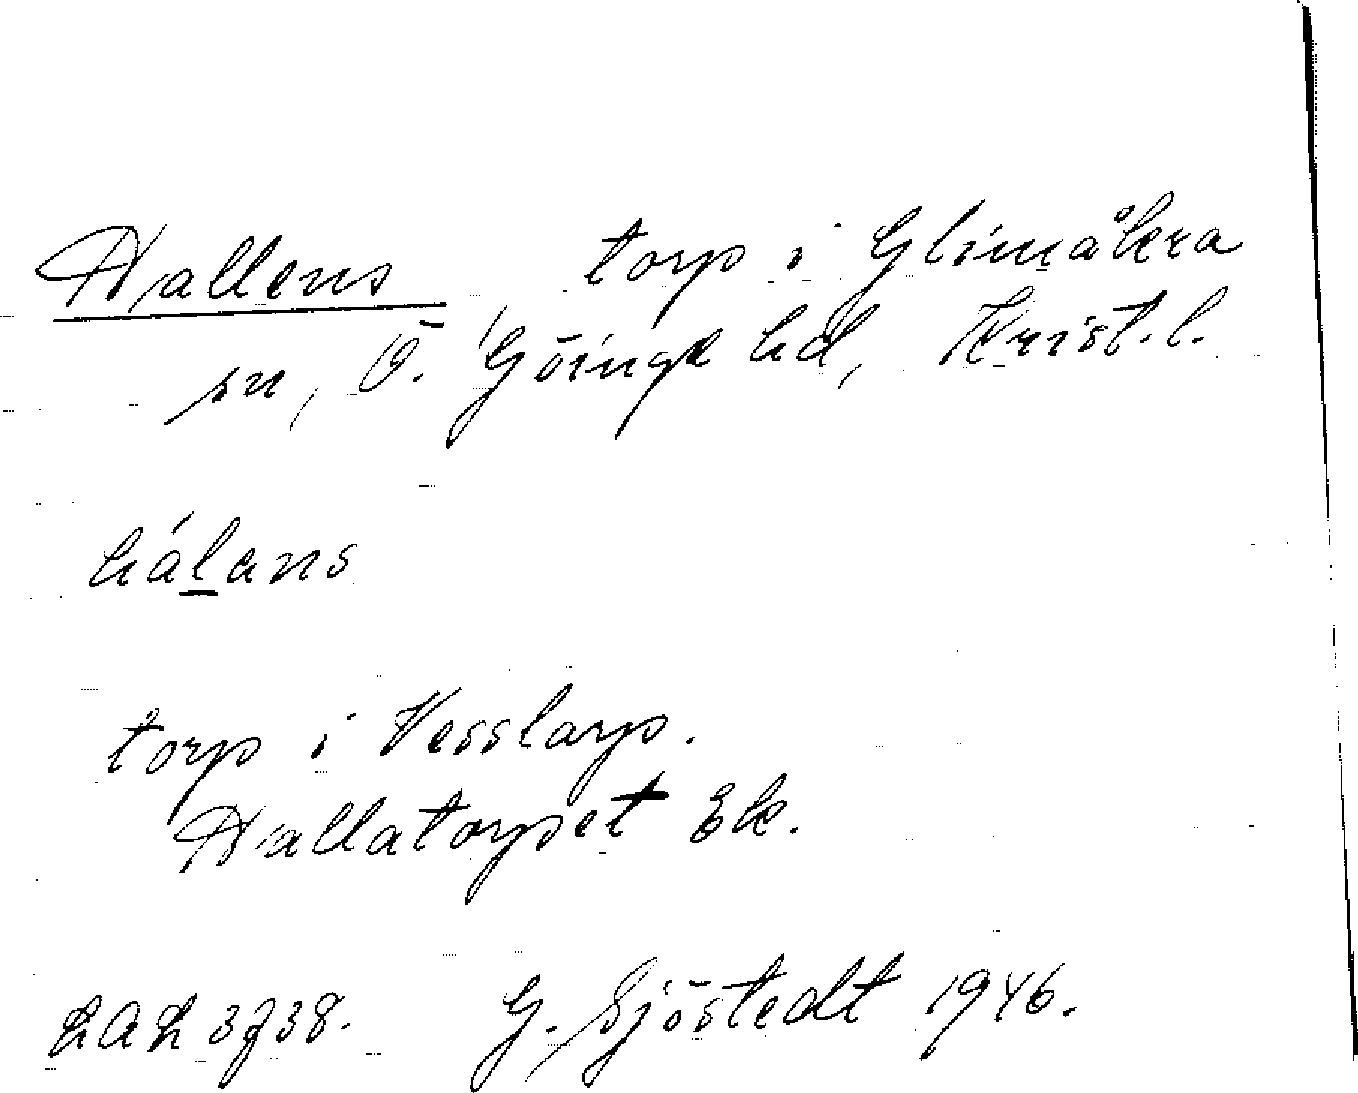 Hallens torp i Glimåkra
sn, Ö. Göinge hd, Krist. l.
hálans
torp i Vesslarp.
Hallatorpet Ek.
LAL 3738. G. Sjöstedt 1946.